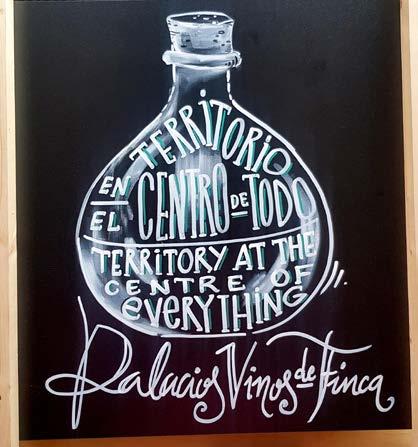 TERRITORIO
EN EL CENTRO DE TODO
TERRITORY AT THE
CENTRE OF
eVERYTHING
Palacios Vinos de Finca